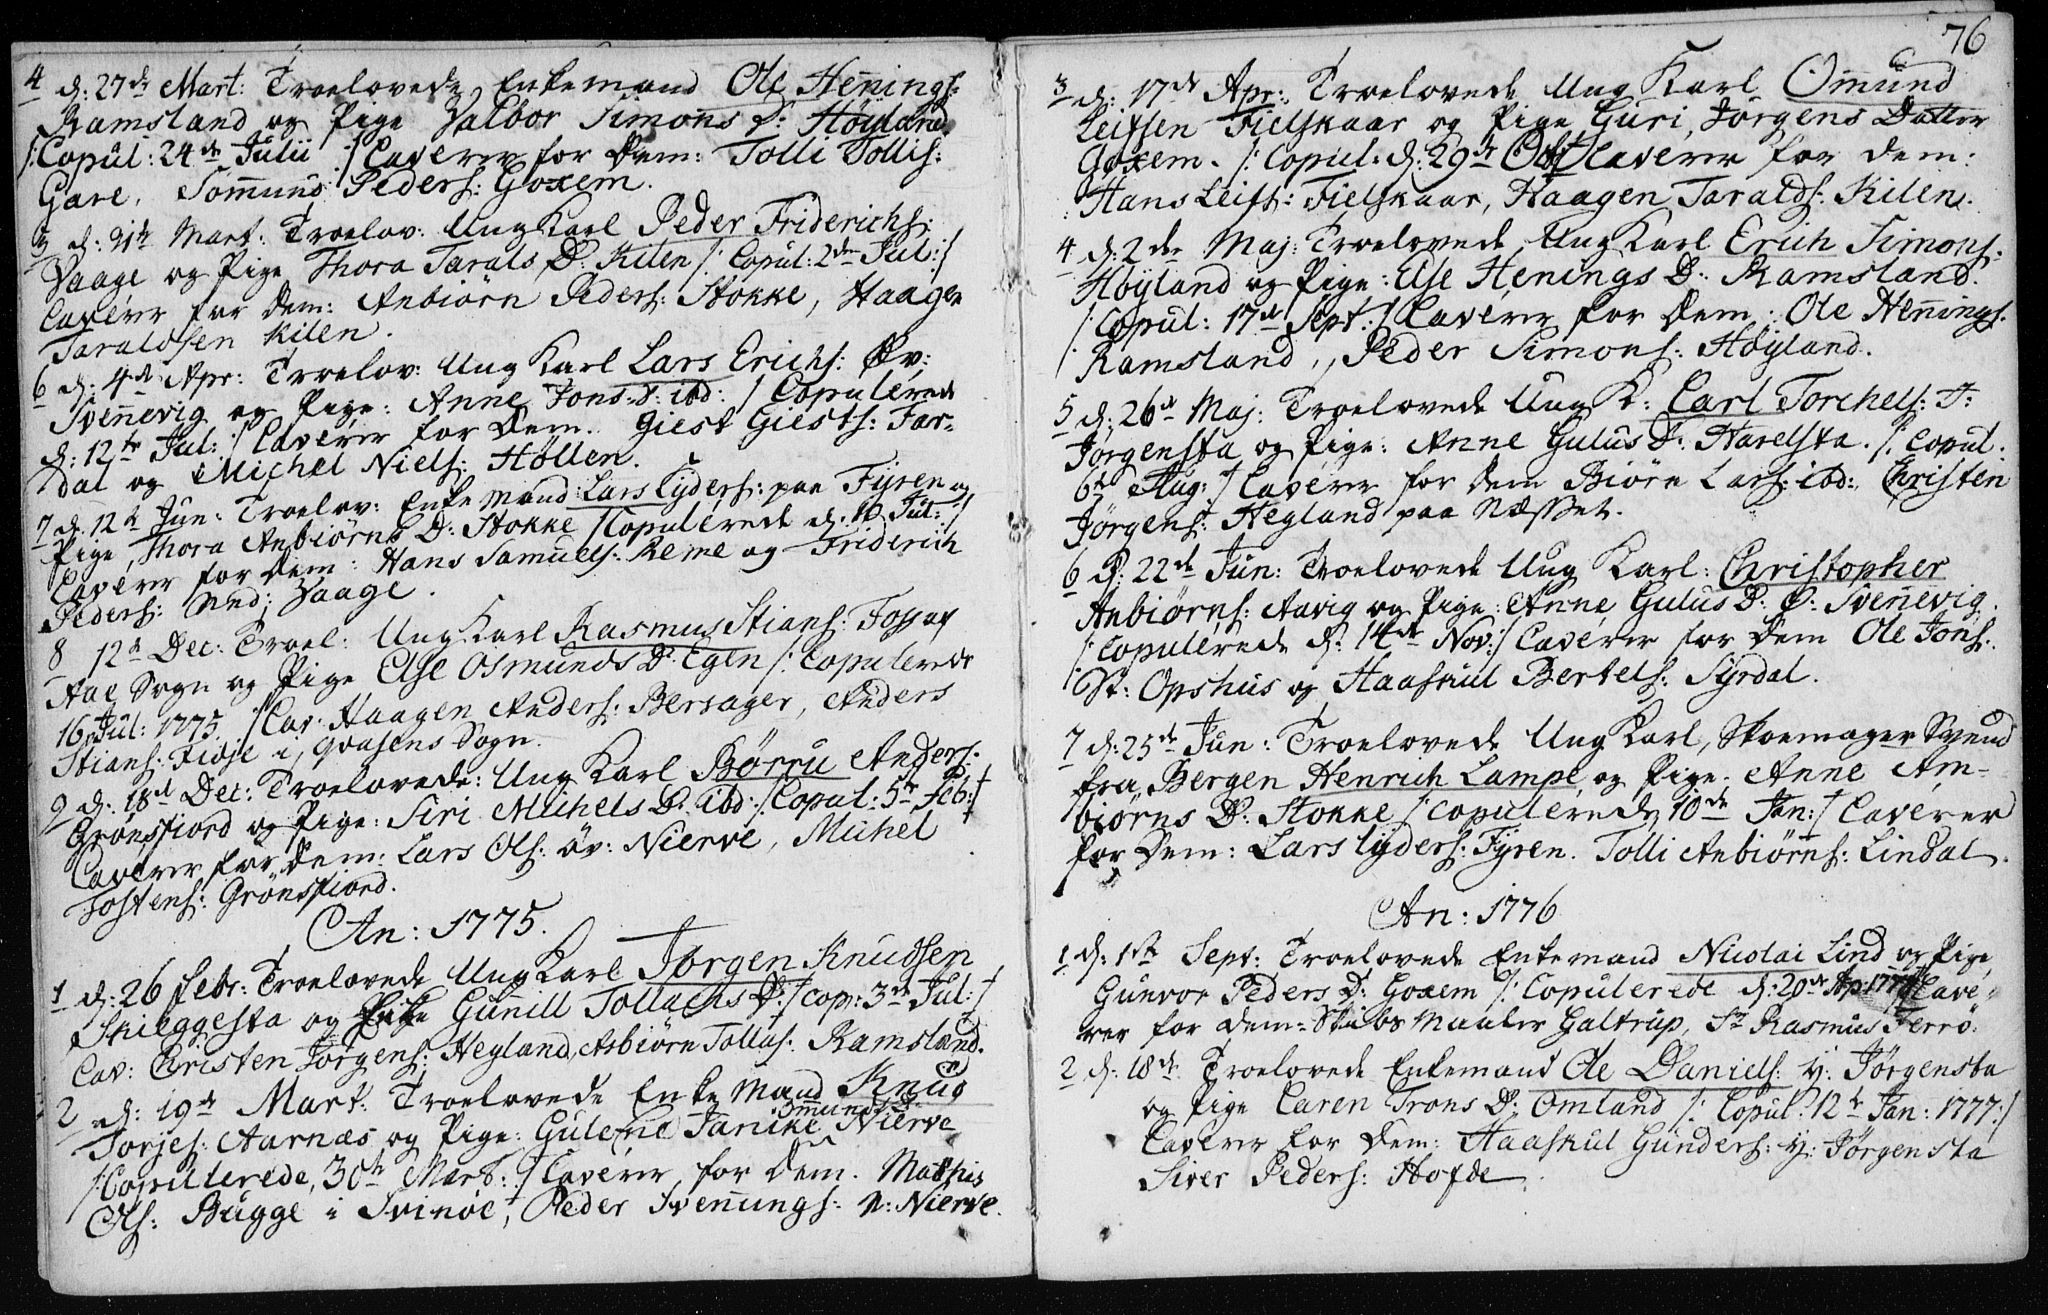 4 d: 27de Mart: Troelovede Enkemand Ole Hennings:
Ramsland og Pige Valbor Simons D: Höyland
/: Copul: 24de Julii :/ Caverer for Dem: Tolli Tollis:
Gare, Sommund Peders: Goxem.
5 d: 31te Mart: Troelov: Ung Karl Peder Friderichs:
Vaage og Pige Thora Tarals D: Kilen /: Copul: 2den Jul: :/
Caverer for Dem: Anbiörn Peders: Stokke, Haagen
Taraldsen Kilen.
6 d: 4de Apr: Troelov: Ung Karl Lars Erichs: Öv:
Svennevig og Pige: Anne Jons D: ibd: /: Copulerede
d: 12te Jul: :/ Caverer for Dem. Giest Giests: Far=
dal og Michel Niels: Höllen.
7 d: 12te Jun: Troelov: Enkemand: Lars Lyders: paa Fyren og
Pige, Thora Anbiörns D: Stokke /: Copulerede d: Jul: :/
Caverer for Dem: Hans Samuels: Reme og Friderich
Peders: Ned: Vaage.
8 12te Dec: Troel: Ung Karl Rasmus Stians: Fossaf
Aae Sogn og Pige Else Osmunds D: Egen /: Copulerede
16 Jul: 1775. :/ Cav: Haagen Anders: Bersager, Anders
Stians: Fidje i Qvasens Sogn.
9 d: 18de Dec: Troelovede: Ung Karl Börru Anders:
Grönsfiord og Pige: Siri Michels D: ibd: /: Copul: 5te Feb: :/
Caverer for Dem: Lars Ols: öv: Nierve, Michel
Jostens: Grönsfiord.
An: 1775.
1 d: 26 Febr: Troelovede Ung Karl Jørgen Knudsen
Skieggesta og Enke Gunill Tollachs D: /: cop: 3de Jul: :/
Cav: Christen Jörgens: Hegland, Asbiörn Tollas: Ramsland.
2 d: 19de Mart: Troelovede Enke Mand Knud
Torjes: Aarnæs og Pige: Gulene Janike Omunds D: Nierve
/: Copulerede, 30te Mart: :/ Caverer for Dem. Mathis
Ols: Bugge i Svinöe, Peder Svennungs: n: Nierve.
76
3 d: 17de Apr: Troelovede Ung Karl Omund
Leifsen Fielskaar og Pige Guri, Jörgens Datter
Goxem. /: Copul: d: 29de Oct :/ Caverer for dem:
Hans Leifs: Fielskaar, Haagen Taralds: Kilen.
4 d: 2den Maj: Troelovede Ung Karl Erich Simons:
Höyland og Pige: Else Hennings D: Ramsland.
/: Copul: 17de Sept: :/ Caverer for Dem: Ole Hennings:
Ramsland, Peder Simons: Höyland.
5 d: 26de Maj: Troelovede Ung K: Carl Torchels: I:
Jørgensta og Pige: Anne Gulus D: Harelsta. /: Copul:
6te Aug: :/ Caverer for Dem Biörn Lars: ibd:, Christen
Jørgens: Hegland paa Næsset.
6 d: 22de Jun: Troelovede Ung Karl: Christopher
Anbiörns: Aavig og Pige: Anne Gulus D: Ö: Svennevig.
/: Copulerede d: 14de Nov: :/ Caverer for Dem Ole Jons:
St: Opshus og Haaskul Bertels: Syrdal.
7 d: 25de Jun: Troelovede Ung Karl, Skoemager Svend
fra Bergen Henrich Lampe, og Pige: Anne Am=
biörns D: Stokke /: copulerede, 10de Jan: :/ Caverer
for Dem: Lars Lyders: Fyren. Tolli Anbiörns: Lindal.
An: 1776
1 d: 1ste Sept: Troelovede Enkemand Nicolai Lind og Pige
Gunvor Peders D: Goxem /: Copulerede d: 20de Ap: 1777 :/ Cave=
rer for Dem: Skibs Maaler Galtrup, Sr Rasmus Ferrö:
2 d: 18de Troelovede Enkemand Ole Daniels: y: Jørgensta
og Pige Caren Trons D: Omland /: Copul: 12te Jan: 1777: :/
Caverer for Dem: Haaskul Gunders: y: Jørgensta
Siver Peders: Hofde.